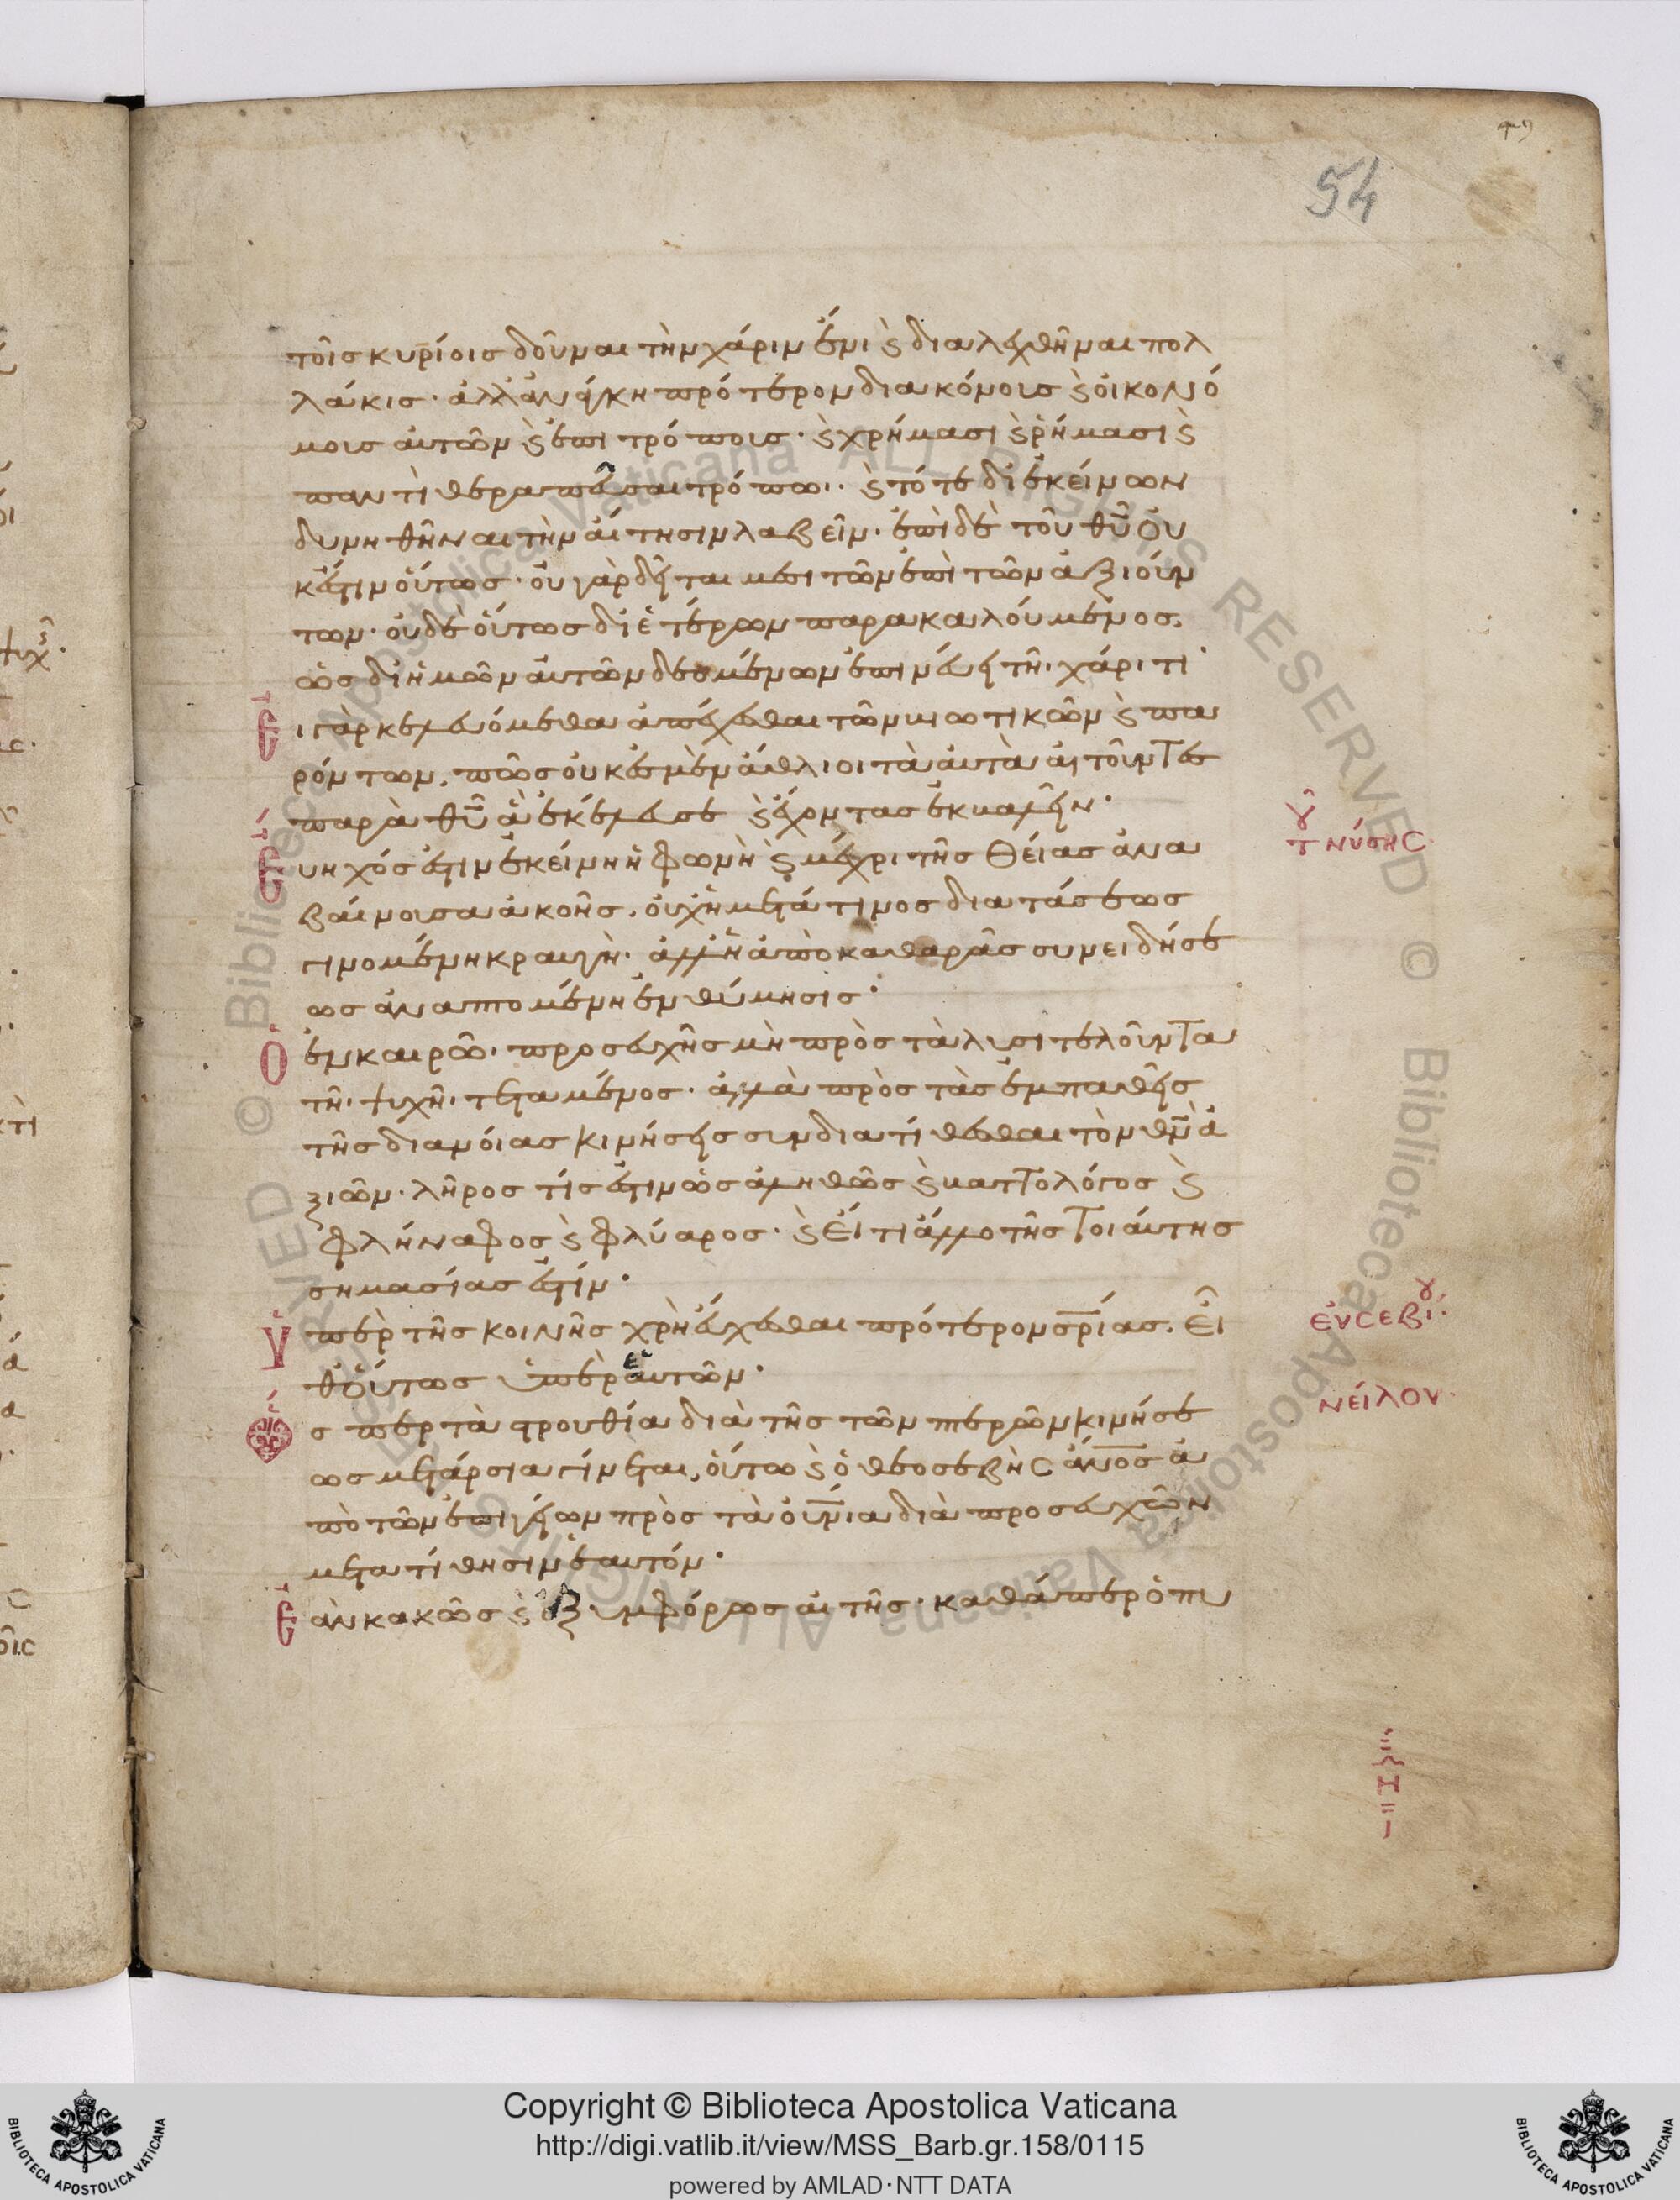 54
τοῖς κυρίοις δοῦναι τὴν χάριν ἔνι ϗ διαλεχθῆναι πολ
λάκις· ἀλλ' ἀνάγκη πρότερον διακόνοις ϗ οἰκονό
μοις αὐτῶν ϗ ἐπιτρόποις· ϗ χρήμασι ϗ ῥήμασι ϗ
παντὶ θεραπεῦσαι τρόπωι· ϗ τότε δι' ἐκείνων
δυνηθῆναι τὴν αἴτησιν λαβεῖν· ἐπὶ δὲ τοῦ θυ οὐ
κ ἔστιν οὕτως· οὐ γὰρ δεῖται μεσιτῶν ἐπὶ τῶν ἀξιούν
των· οὐδὲ οὕτως δι' ἑτέρων παρακαλούμενος,
ὡς δι' ἡμῶν αὐτῶν δεομένων ἐπινεύει τῆι χάριτι·
Ε
ι γὰρ κελευόμεθα ἀπέχεσθαι τῶν βιωτικῶν ϗ πα
ρόντων, πῶς οὐκ ἐσμὲν ἄθλιοι τὰ αὐτὰ αἰτοῦντες
παρὰ θυ ἃ ἐκέλευσε ϗ ἔχοντας ἐκβαλεῖν·
Ε
υηχός ἐστιν ἐκείνη ἡ φωνὴ ϗ μέχρι τῆς θείας ἀνα
βαίνουσα ἀκοῆς, οὐχ ἡ μετά τινος διατάσεως
γινομένη κραυγὴ· ἀλλ' ἡ ἀπὸ καθαρᾶς συνειδήσε
ως ἀναπτομένη ἐνθύμησις·
Ο
ἐν καιρῶι προσευχῆς μὴ πρὸς τὰ λυσιτελοῦντα
τῆι ψυχῆι τεταμένος· ἀλλὰ πρὸς τὰς ἐμπαθεῖς
τῆς διανοίας κινήσεις συνδιατίθεσθαι τὸν θν ἀ
ξιῶν· λῆρος τίς ἐστιν ὡς ἀληθῶς ϗ βαττολόγος ϗ
φλήναφος ϗ φλύαρος· ϗ εἴ τι ἄλλο τῆς τοιαύτης
σημασίας ἐστίν·
Υ
πὲρ τῆς κοινῆς χρὴ εὔχεσθαι πρότερον σρίας. εἶ
θ' οὕτως ὑπὲρ ἑαυτῶν·
Ω
σπερ τὰ στρουθία διὰ τῆς τῶν πτερῶν κινήσε
ως μετάρσια γίνεται, οὕτω ϗ ὁ θεοσεβὴς ἄνος ἀ
πὸ τῶν ἐπιγείων πρὸς τὰ οὐνια διὰ προσευχῶν
μετατίθησιν ἑαυτόν·
Ε
ὰν κακῶς ϗ ἀξυμφόρως αἰτῆς· καθάπερ ὁ πυ
τ νύσης
εὐσεβί
νείλου·
Copyright © Biblioteca Apostolica Vaticana
http://digi.vatlib.it/view/MSS_Barb.gr.158/0115
powered by AMLAD·NTT DATA
BIBLIOTECA APOSTOLICA VATICANA
BIBLIOTECA APOSTOLICA VATICANA